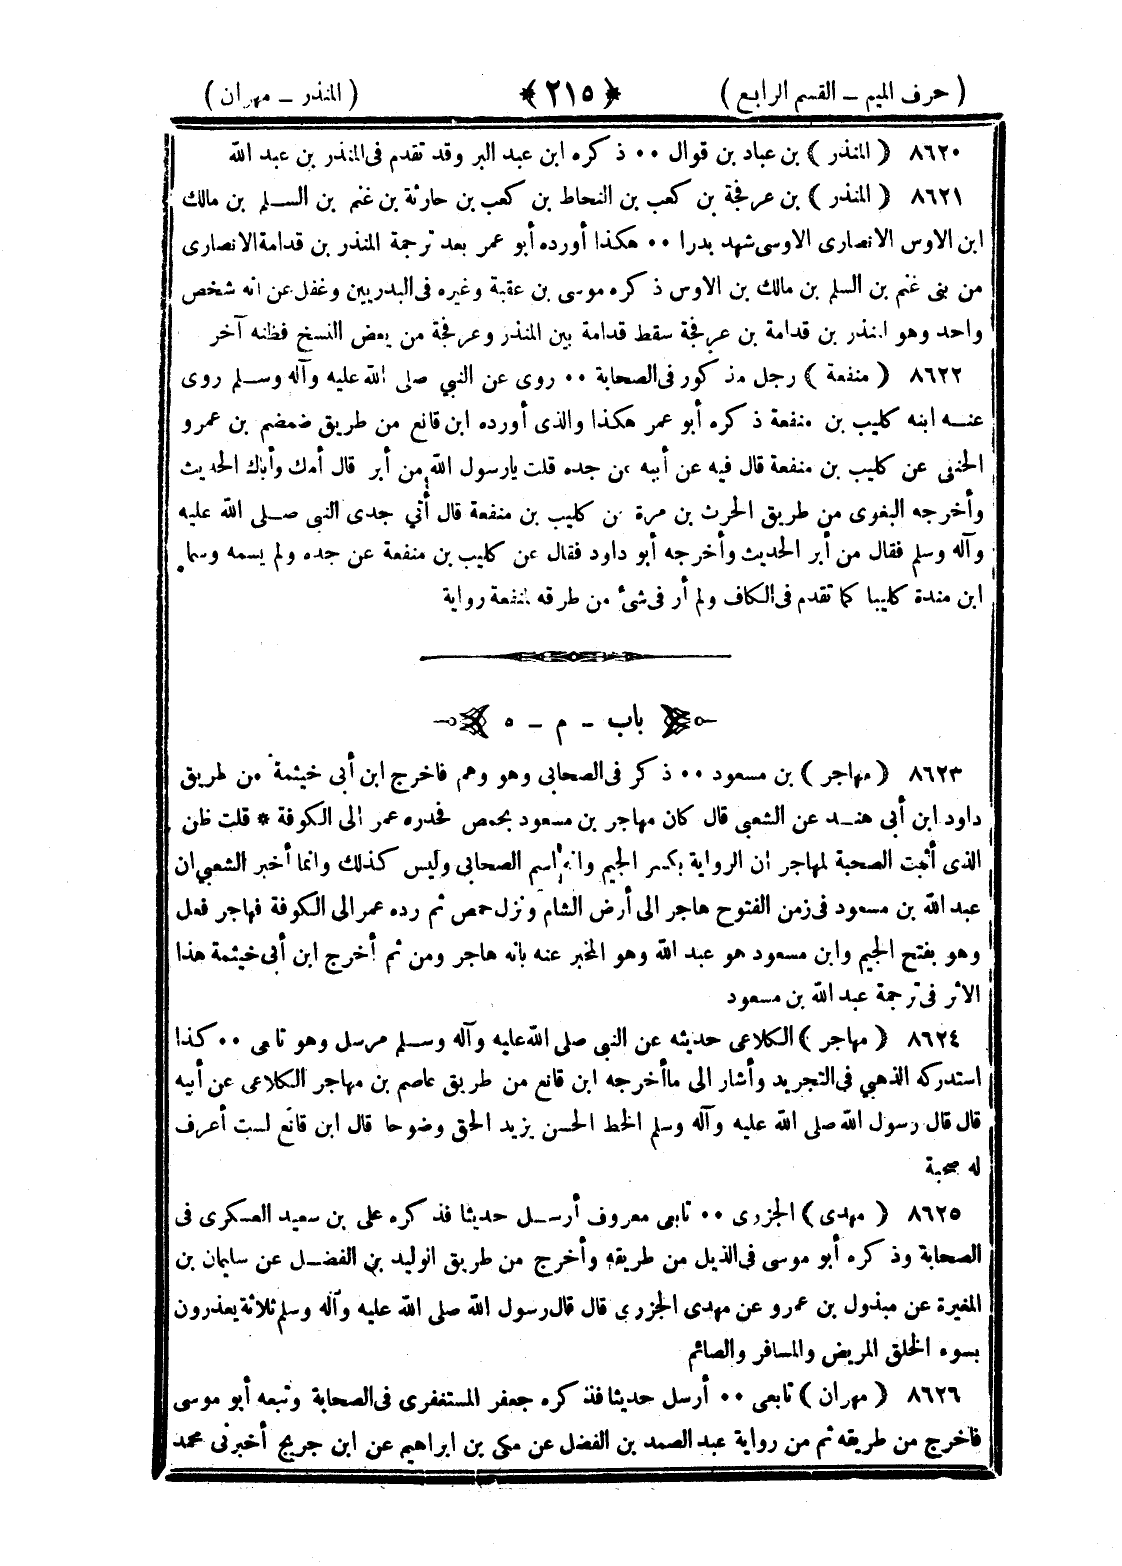 ( حرف الميم ــ القسم الرابع ) ﴿ ٢١٥ ﴾ ( المنذر ــ مهران )
٨٦٢٠ ( المنذر ) بن عباد بن قوال ٠٠ ذكره ابن عبد البر وقد تقدم فى المنذر بن عبد الله
٨٦٢١ ( المنذر ) بن عرفجة بن كعب بن النحاط بن كعب بن حارثة بن غنم بن السلم بن مالك
ابن الاوس الانصارى الاوسى شهد بدرا ٠٠ هكذا أورده أبو عمر بعد ترجمة المنذر بن قدامة الانصارى
من بنى غنم بن السلم بن مالك بن الاوس ذكره موسى بن عقبة وغيره فى البدريين وغفل عن انه شخص
واحد وهو المنذر بن قدامة بن عرفجة سقط قدامة بين المنذر وعرفجة من بعض النسخ فظنه آخر
٨٦٢٢ ( منفعة ) رجل مذكور فى الصحابة ٠٠ روى عن النبي صلى الله عليه وآله وسلم روى
عنه ابنه كليب بن منفعة ذكره أبو عمر هكذا والذى أورده ابن قانع من طريق ضمضم بن عمرو
الحنفى عن كليب بن منفعة قال فيه عن أبيه عن جده قلت يارسول الله من أبر قال أمك وأباك الحديث
وأخرجه البغوى من طريق الحرث بن مرة عن كليب بن منفعة قال أتي جدى النبى صلى الله عليه
وآله وسلم فقال من أبر الحديث وأخرجه أبو داود فقال عن كليب بن منفعة عن جده ولم يسمه وسماه
ابن مندة كليبا كما تقدم فى الكاف ولم أر فى شئ من طرقه لمنفعة رواية
باب ــ م ــ ه
٨٦٢٣ ( مهاجر ) بن مسعود ٠٠ ذكر فى الصحابى وهو وهم فاخرج ابن أبى خيثمة من طريق
داود ابن أبى هند عن الشعبى قال كان مهاجر بن مسعود بحمص فحدره عمر الى الكوفة * قلت ظن
الذى أثبت الصحبة لمهاجر ان الرواية بكسر الجيم وانه اسم الصحابى وليس كذلك وانما أخبر الشعبي ان
عبد الله بن مسعود فى زمن الفتوح هاجر الى أرض الشام ونزل حمص ثم رده عمر الى الكوفة فهاجر فعل
وهو بفتح الجيم وابن مسعود هو عبد الله وهو المخبر عنه بانه هاجر ومن ثم أخرج ابن أبى خيثمة هذا
الاثر فى ترجمة عبد الله بن مسعود
٨٦٢٤ ( مهاجر ) الكلاعى حديثه عن النبى صلى الله عليه وآله وسلم مرسل وهو تابعى ٠٠ كذا
استدركه الذهبي فى التجريد وأشار الى ماأخرجه ابن قانع من طريق عاصم بن مهاجر الكلاعى عن أبيه
قال قال رسول الله صلى الله عليه وآله وسلم الخط الحسن يزيد الحق وضوحا قال ابن قانع لست أعرف
له صحبة
٨٦٢٥ ( مهدى ) الجزرى ٠٠ تابعى معروف أرسل حديثا فذكره على بن سعيد العسكرى فى
الصحابة وذكره أبو موسى فى الذيل من طريقه وأخرج من طريق الوليد بن الفضل عن سليمان بن
المغيرة عن مبذول بن عمرو عن مهدى الجزرى قال قال رسول الله صلى الله عليه وآله وسلم ثلاثة يعذرون
بسوء الخلق المريض والمسافر والصائم
٨٦٢٦ ( مهران ) تابعى ٠٠ أرسل حديثا فذكره جعفر المستغفرى فى الصحابة وتبعه أبو موسى
فاخرج من طريقه ثم من رواية عبد الصمد بن الفضل عن مكى بن ابراهيم عن ابن جريج أخبرنى محمد